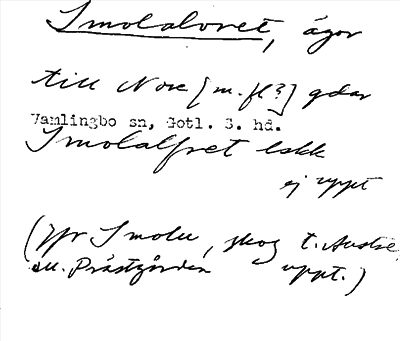 Smolalovet, ägor
till Nore [m. fl?] gdar
Vamlingbo sn, Gotl. S. hd.
Smolalfret Lskk
ej uppt
(Jfr Smolu, skog t.
o. Prästgården uppt.)